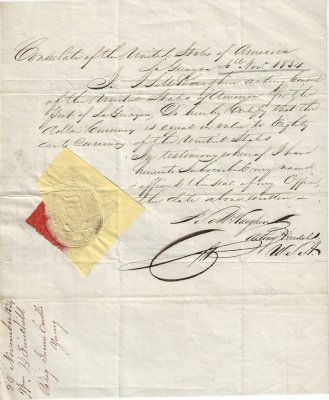 Consulate of the United States of America
La Guayra 4th Novr 1834
I, acting Consul
of the United States of America for the
Port of La Guayra, Do hereby Certify that the
dollar Currency is equal in value to Eighty
cents currency of the United States
In testimony whereof I have
hereunto Subscribed my name
& affixed the seal of my Office,
the date above written
acting Consul
U.S.A.
20 November 1834
Wm
Brig